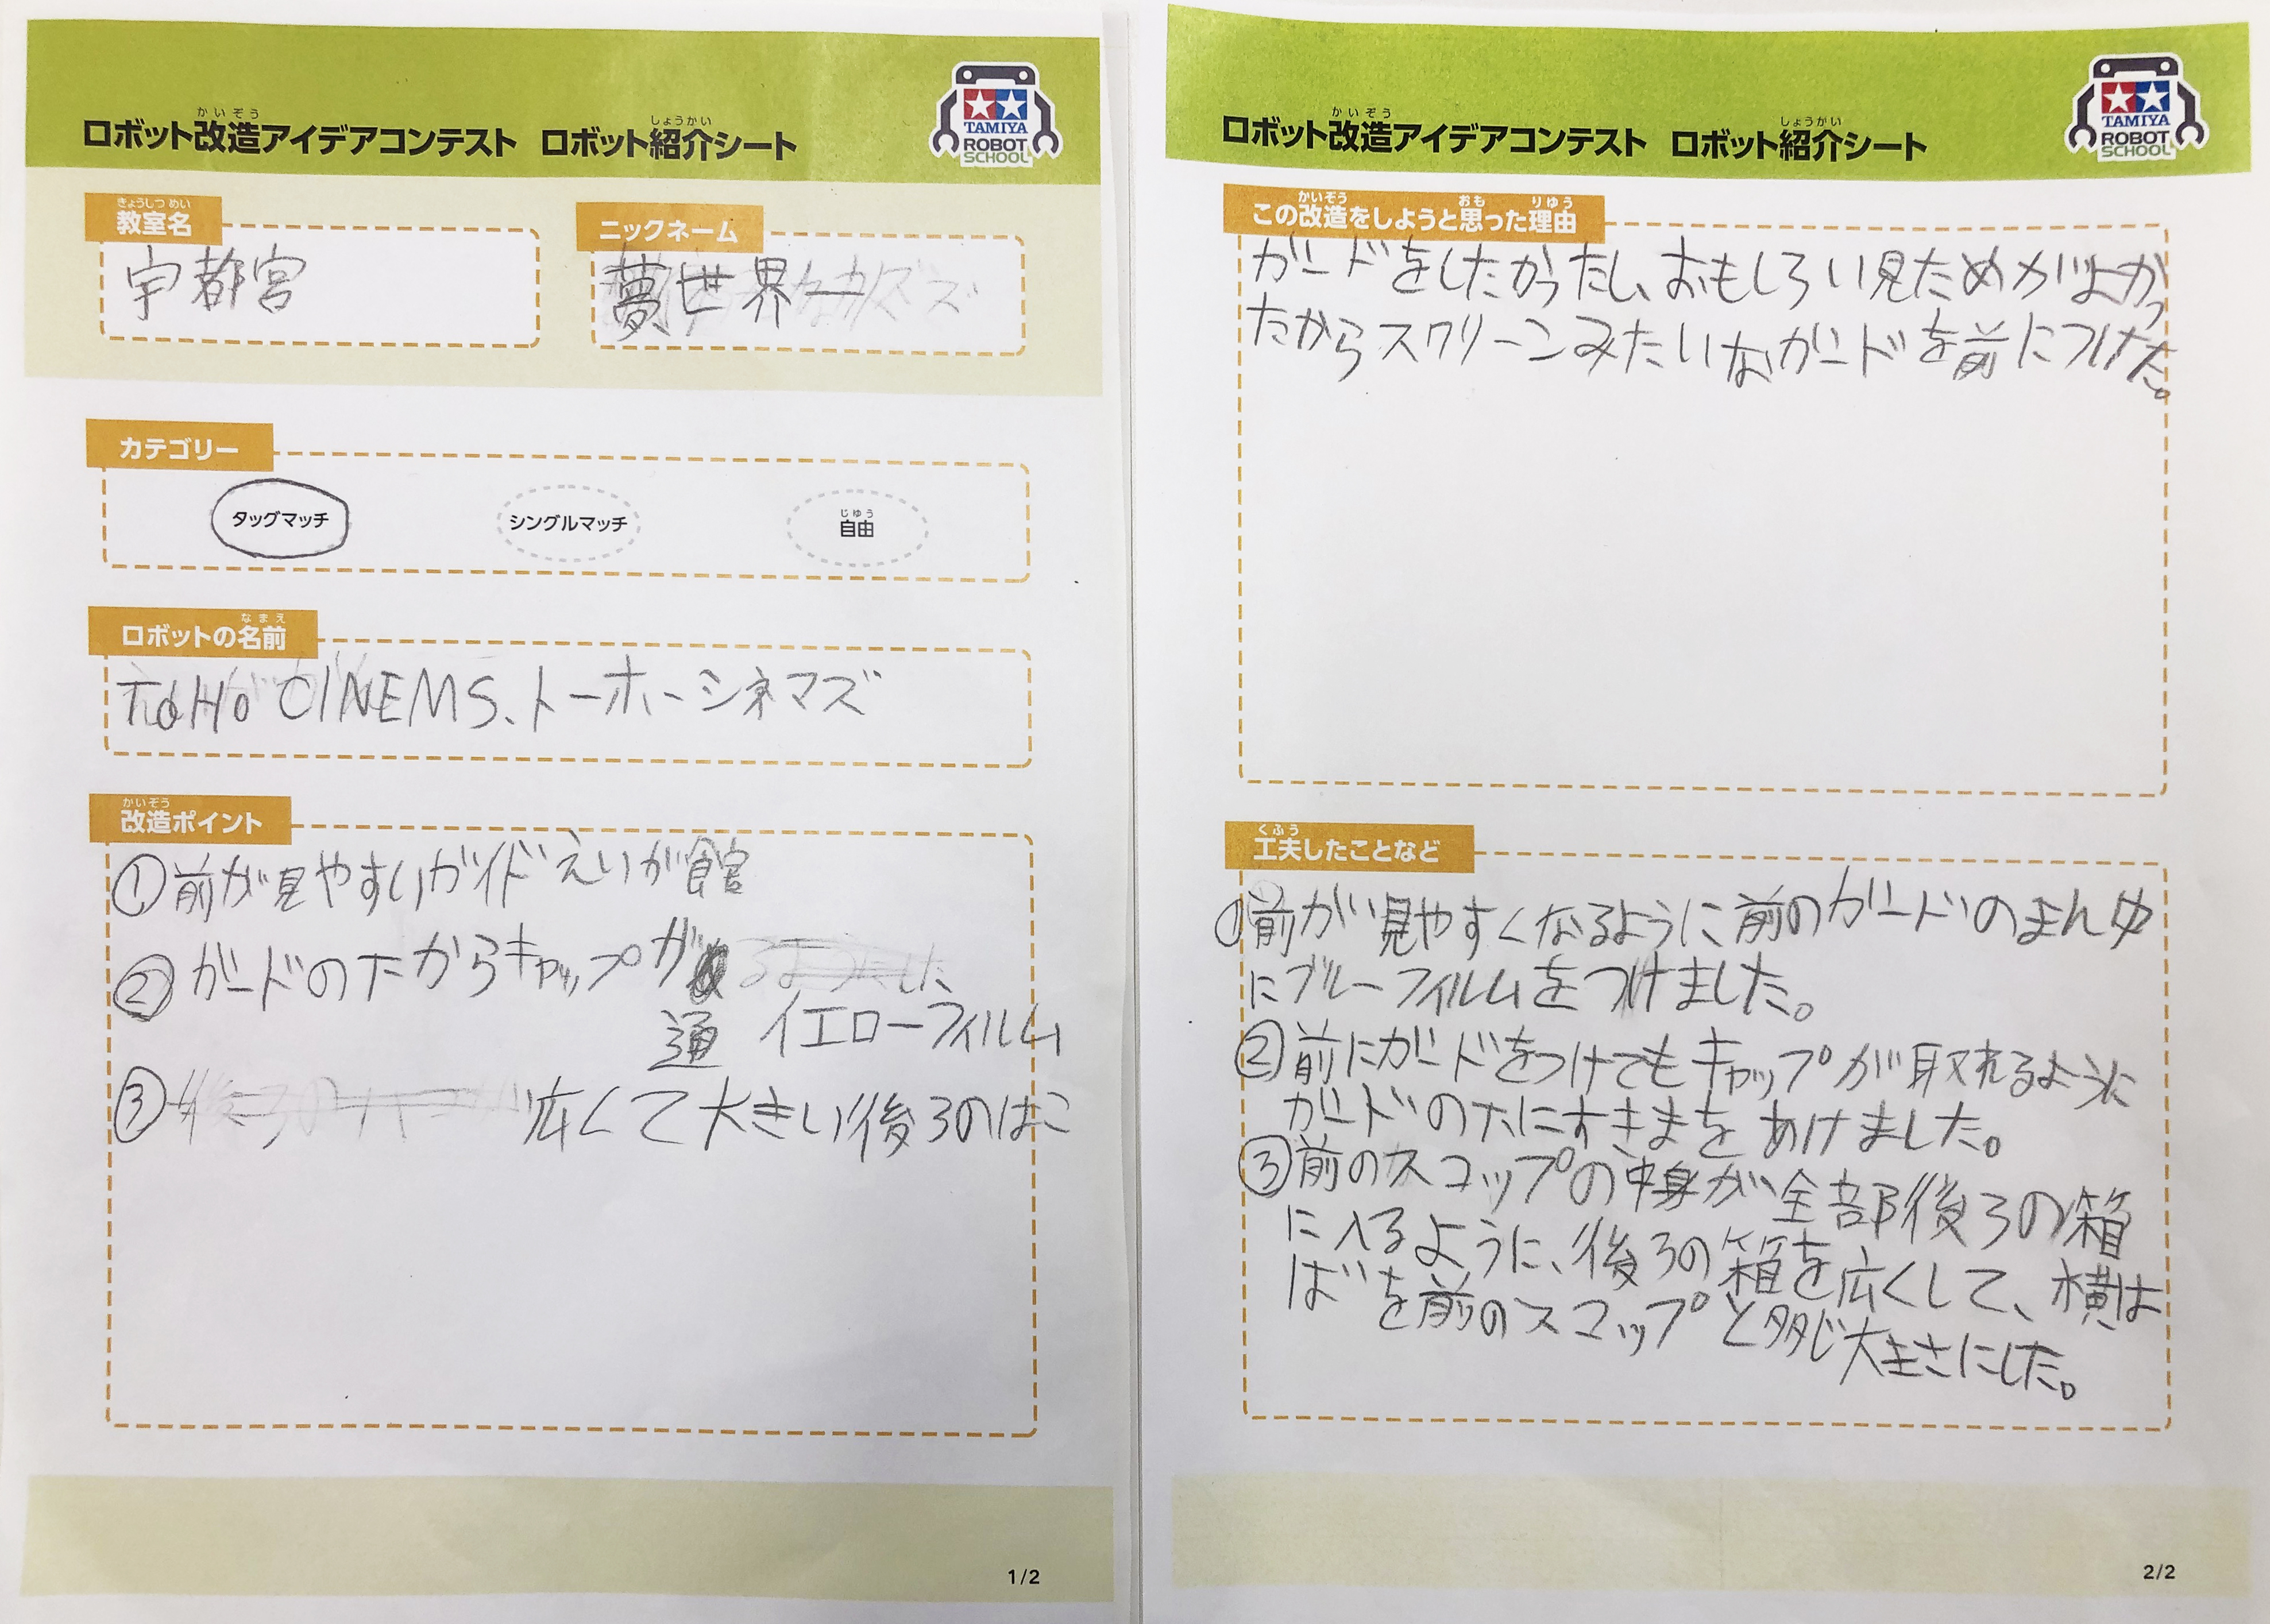 かいぞう しょうかい
ロボット改造アイデアコンテスト ロボット紹介シート
TAMIYA
ROBOT
SCHOOL
きょうしつ めい
教室名
宇都宮
ニックネーム
夢世界一
カテゴリー
タッグマッチ
シングルマッチ
じゆう
自由
なまえ
ロボットの名前
ToHo CINEMS、トーホーシネマズ
かいぞう
改造ポイント
①前が見やすいガイド えいが館
②ガードの下からキャップが
通 イエローフィルム
③ 広くて大きい後ろのはこ
1/2
かいぞう しょうかい
ロボット改造アイデアコンテスト ロボット紹介シート
TAMIYA
ROBOT
SCHOOL
かいぞう おも りゆう
この改造をしようと思った理由
ガードをしたかったし、おもしろい見ためがよかっ
たからスクリーンみたいなガードを前につけた。
くふう
工夫したことなど
①前が見やすくなるように前のガードのまん中
にブルーフィルムをつけました。
②前にガードをつけてもキャップが取れるように
ガードの下にすきまをあけました。
③前のスコップの中身が全部後ろの箱
に入るように、後ろの箱を広くして、横は
ばを前のスコップと同じ大きさにした。
2/2